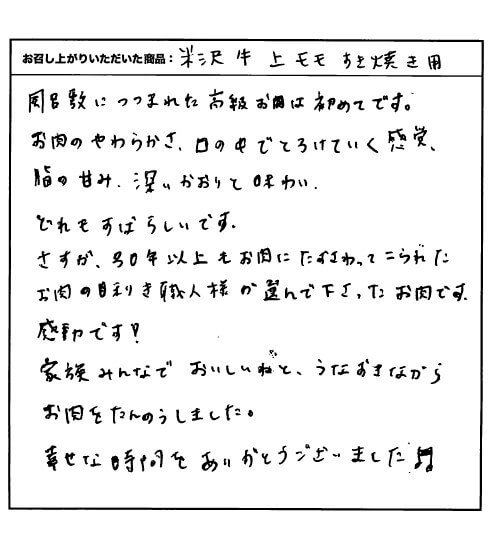 お召し上がりいただいた商品：米沢牛 上モモ すき焼き用
風呂敷につつまれた高級お肉は初めてです。
お肉のやわらかさ、口の中でとろけていく感覚、
脂の甘み、深いかおりと味わい、
どれもすばらしいです。
さすが、30年以上もお肉にたずさわってこられた
お肉の目利き職人様が選んで下さったお肉です。
感動です！
家族みんなでおいしいねと、うなずきながら
お肉をたんのうしました。
幸せな時間をありがとうございました♬